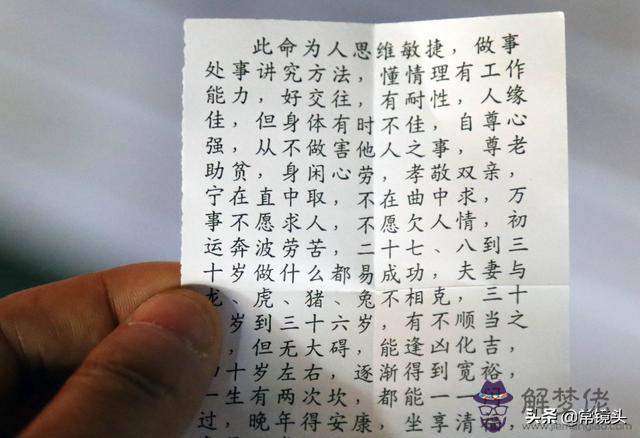 此命为人思维敏捷，做事
处事讲究方法，懂情理有工作
能力，好交往，有耐性，人缘
佳，但身体有时不佳，自尊心
强，从不做害他人之事，尊老
助贫，身闲心劳，孝敬双亲，
宁在直中取，不在曲中求，万
事不愿求人，不愿欠人情，初
运奔波劳苦，二十七、八到三
十岁做什么都易成功，夫妻与
龙、虎、猪、兔不相克，三十
岁到三十六岁，有不顺当之
，但无大碍，能逢凶化吉，
十岁左右，逐渐得到宽裕，
一生有两次坎，都能一一
过，晚年得安康，坐享清
解梦佬
www.jiemenglao.com
头条 @常镜头